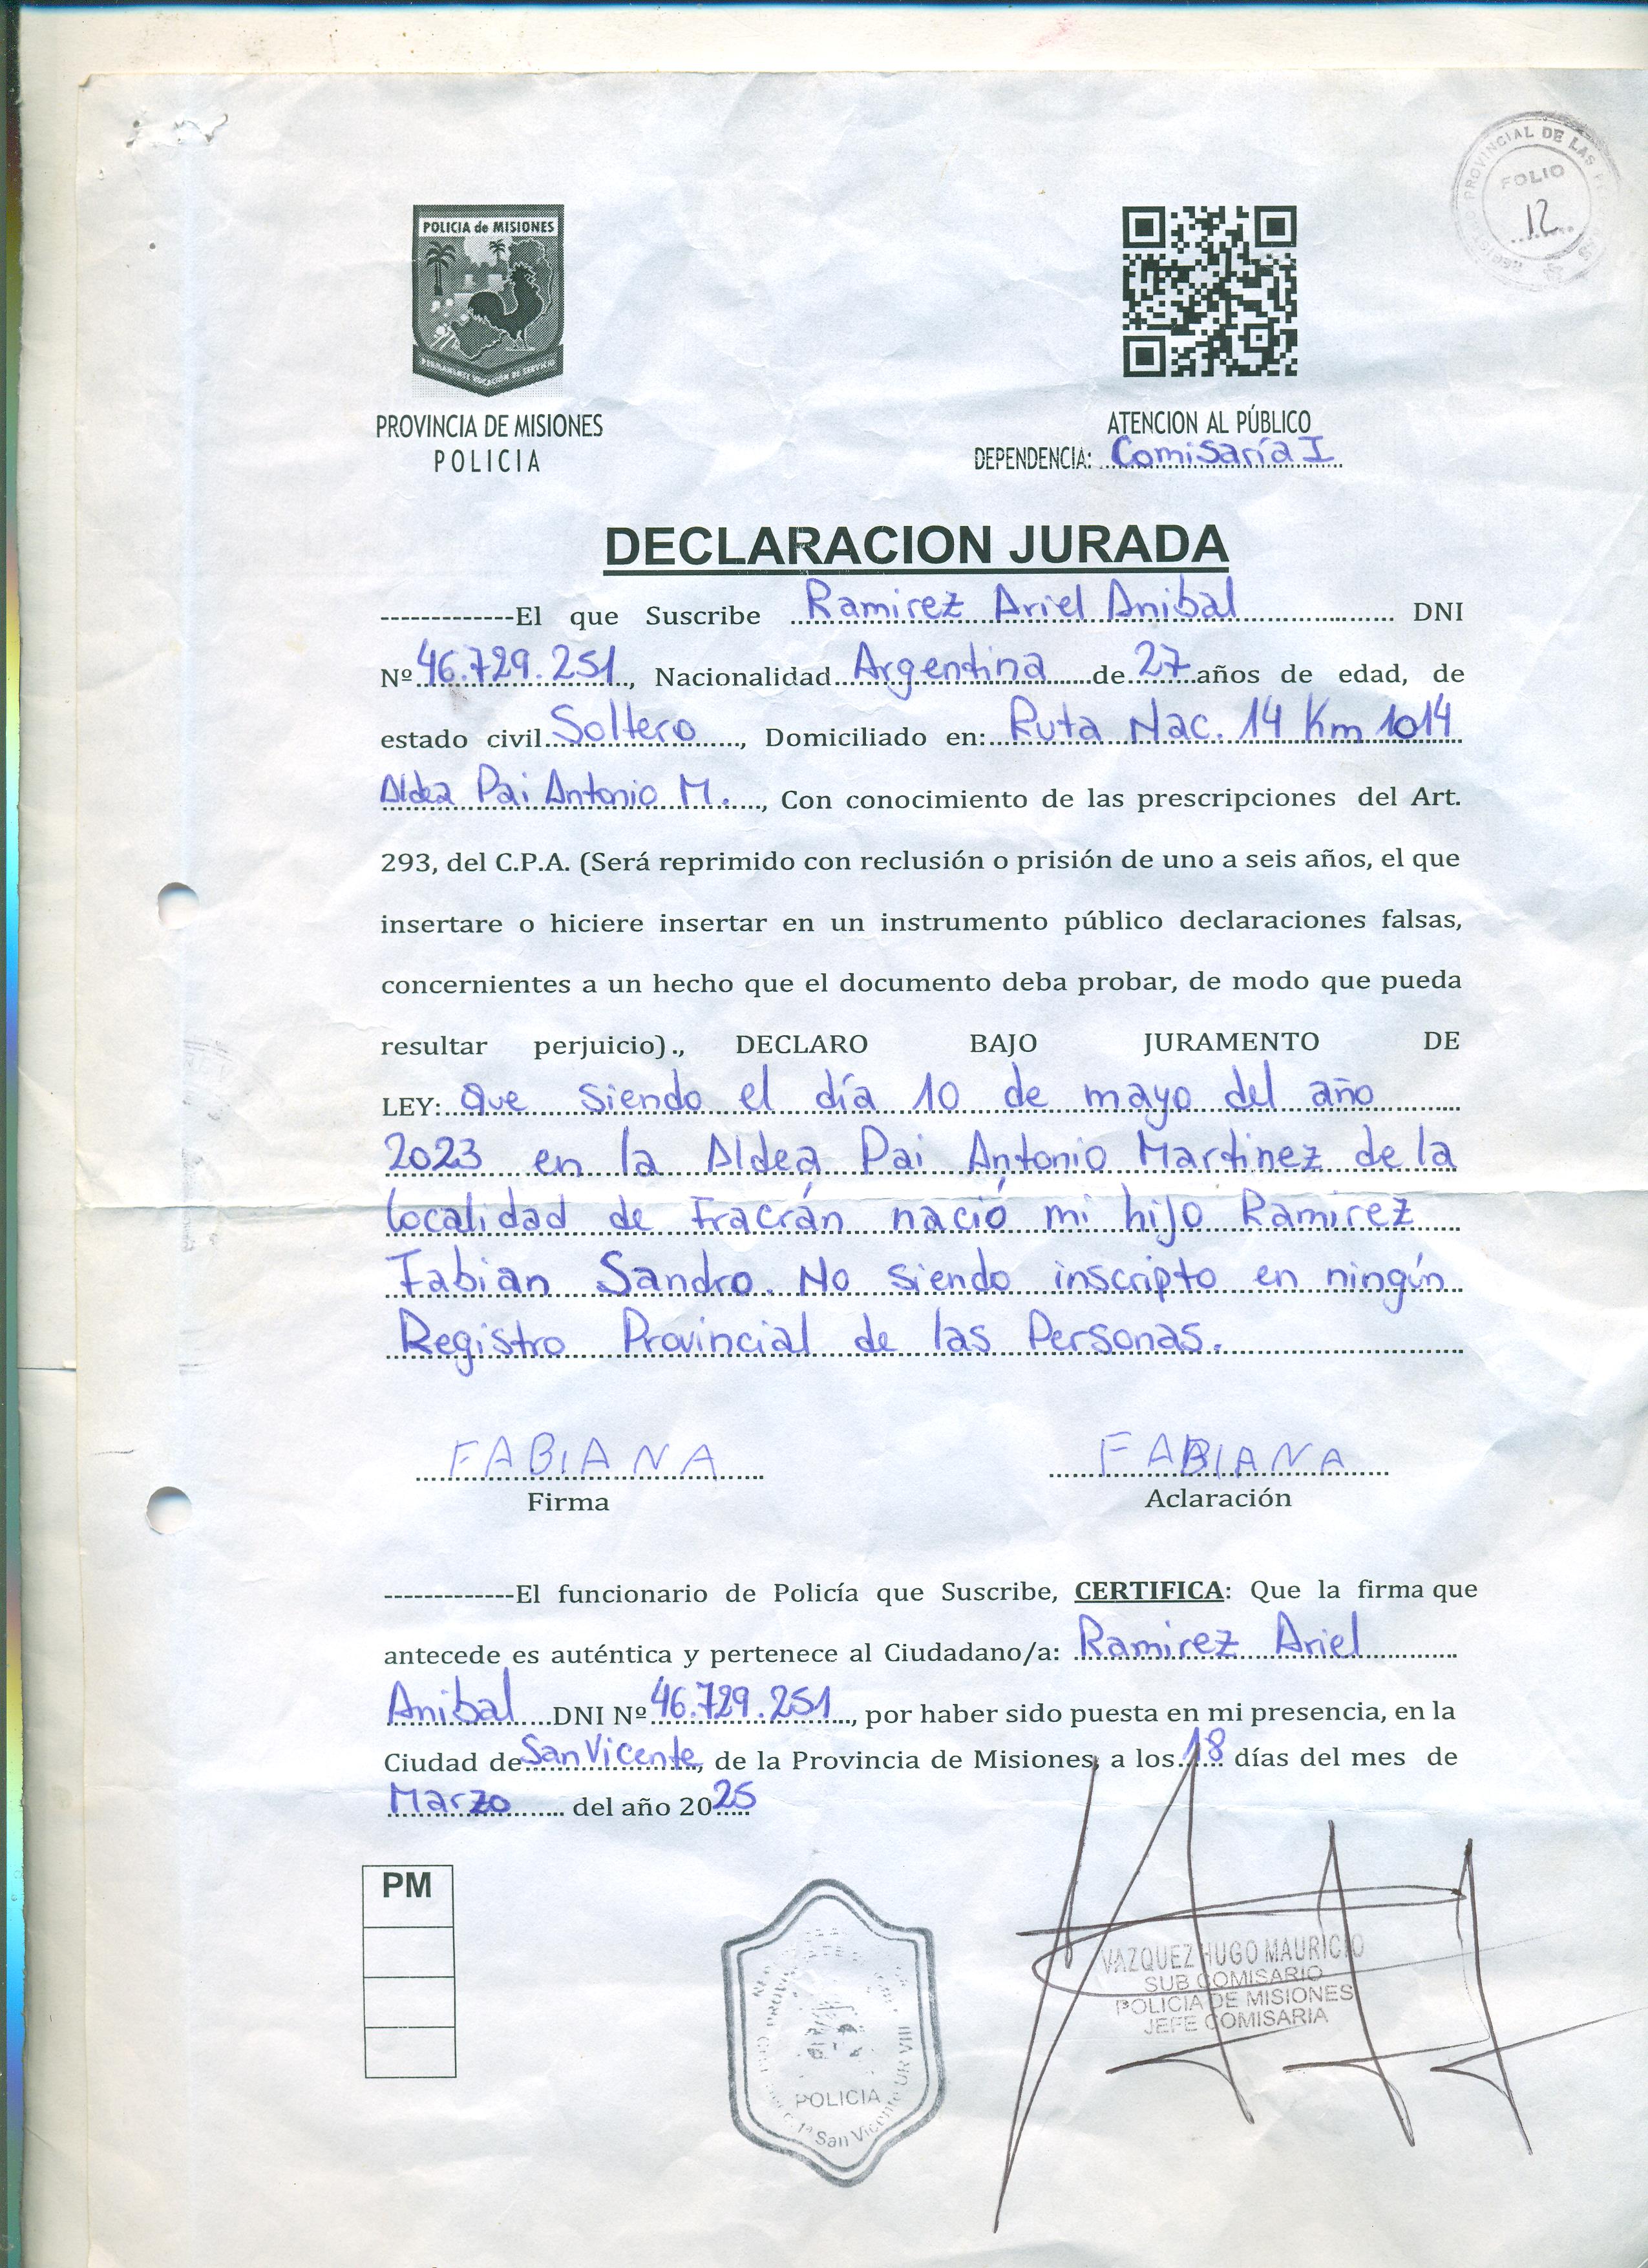 PROVINCIAL DE LAS
FOLIO
12
POLICIA de MISIONES
PERMANENTE VOCACIÓN DE SERVICIO
PROVINCIA DE MISIONES
POLICIA
ATENCION AL PÚBLICO
DEPENDENCIA: Comisaría I
DECLARACION JURADA
------------El que Suscribe Ramirez Ariel Anibal DNI
Nº 46.729.251, Nacionalidad Argentina de 27 años de edad, de
estado civil Soltero, Domiciliado en: Ruta Nac. 14 Km 1014
Aldea Pai Antonio M., Con conocimiento de las prescripciones del Art.
293, del C.P.A. (Será reprimido con reclusión o prisión de uno a seis años, el que
insertare o hiciere insertar en un instrumento público declaraciones falsas,
concernientes a un hecho que el documento deba probar, de modo que pueda
resultar perjuicio)., DECLARO BAJO JURAMENTO DE
LEY: Que siendo el día 10 de mayo del año
2023 en la Aldea Pai Antonio Martinez de la
localidad de Fracrán nació mi hijo Ramirez
Fabian Sandro. No siendo inscripto en ningún
Registro Provincial de las Personas.
FABIANA FABIANA
Firma Aclaración
------------El funcionario de Policía que Suscribe, CERTIFICA: Que la firma que
antecede es auténtica y pertenece al Ciudadano/a: Ramirez Ariel
Anibal DNI Nº 46.729.251, por haber sido puesta en mi presencia, en la
Ciudad de San Vicente, de la Provincia de Misiones, a los 18 días del mes de
Marzo del año 2025
PM
VAZQUEZ HUGO MAURICIO
SUB COMISARIO
POLICIA DE MISIONES
JEFE COMISARIA
POLICIA
1ª San Vicente UR VIII